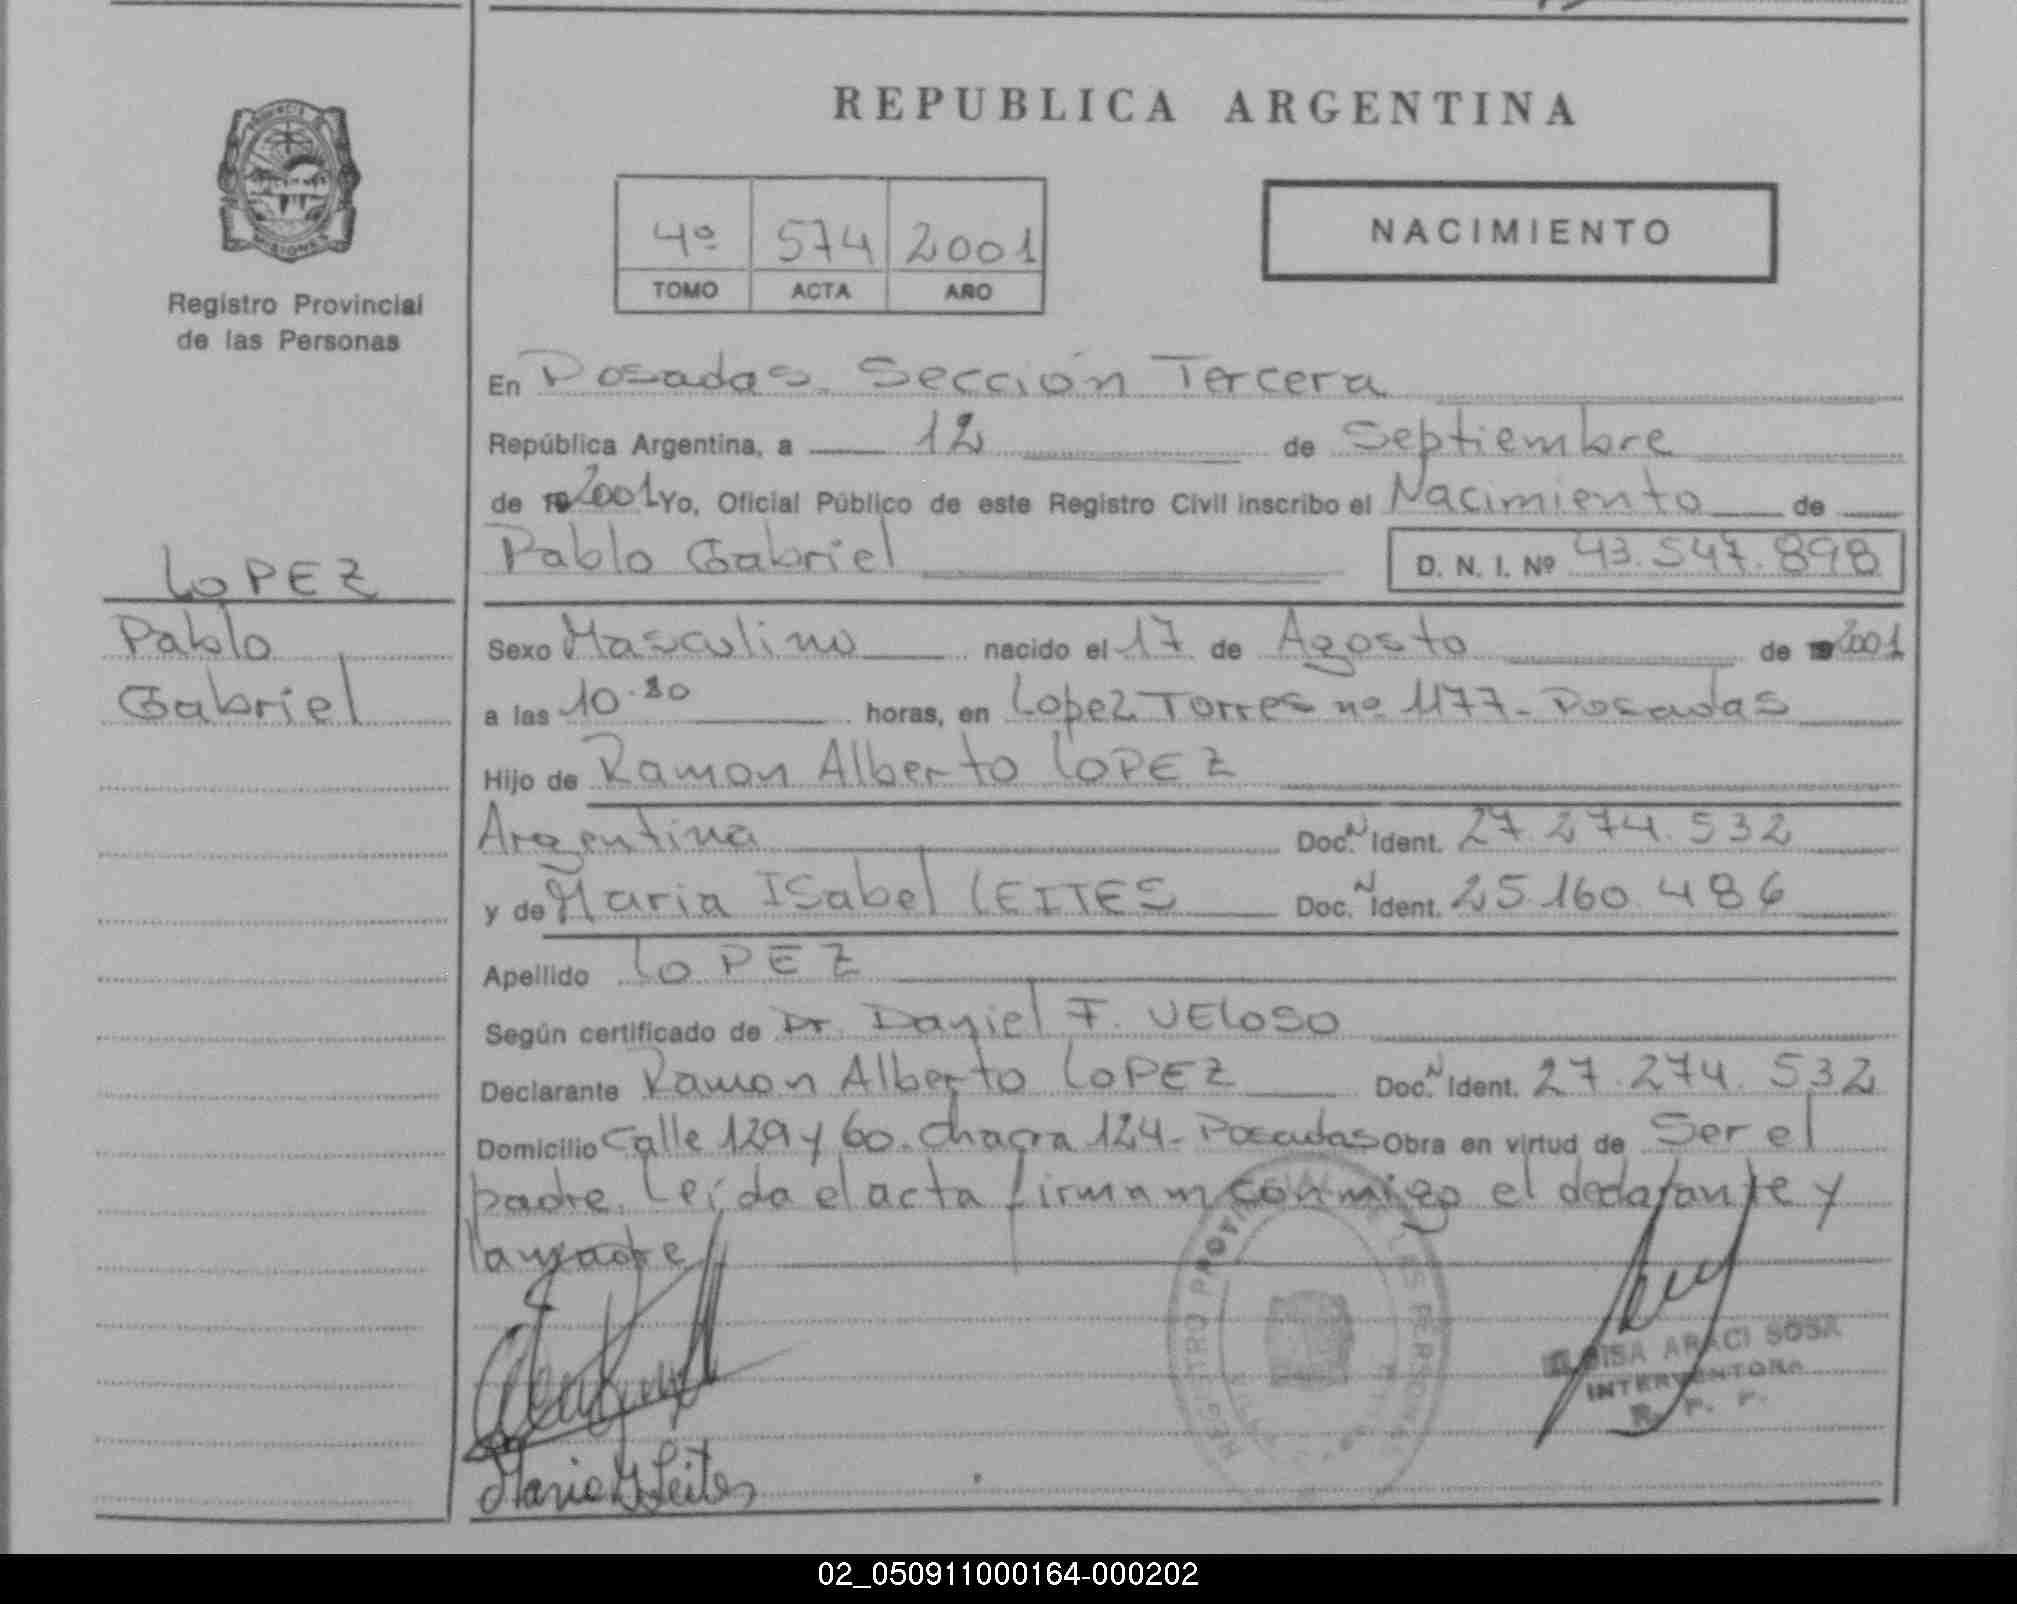 REPUBLICA ARGENTINA
PROVINCIA
MISIONES
Registro Provincial
de las Personas
4º 574 2001
TOMO ACTA AÑO
NACIMIENTO
En Posadas. Sección Tercera
República Argentina, a 12 de Septiembre
de 19 2001 Yo, Oficial Público de este Registro Civil inscribo el Nacimiento de
Pablo Gabriel D. N. I. Nº 43.547.898
LOPEZ
Pablo
Gabriel
Sexo Masculino nacido el 17 de Agosto de 19 2001
a las horas, en Lopez Torres nº 1177 - Posadas
Hijo de Ramon Alberto LOPEZ
Argentina Doc. N Ident. 27.274.532
y de Maria ISabel LEITES Doc. N Ident. 25.160.486
Apellido LOPEZ
Según certificado de Dr. Daniel F. VELOSO
Declarante Ramon Alberto LOPEZ Doc. N Ident. 27.274.532
Domicilio Calle 129 y 60. Chacra 124 - Posadas Obra en virtud de Ser el
padre. Leída el acta firman conmigo el declarante y
la madre
REGISTRO PROVINCIAL DE LAS PERSONAS
ARACI SOSA
INTERVENTORA
R. P. P.
Maria Y Leites
02_050911000164-000202